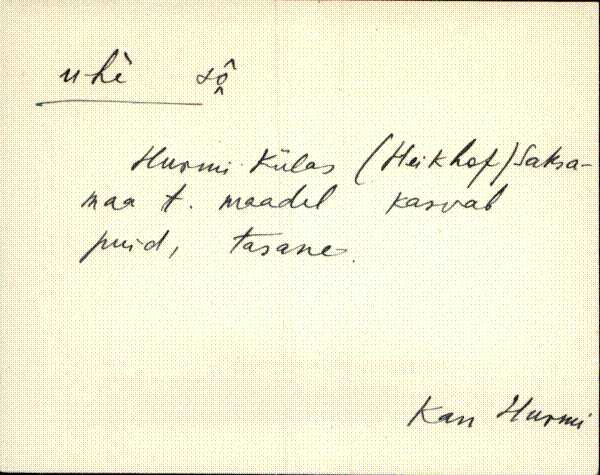 uhè sô̭
Hurmi Külas (Heikhof) Saksa-
maa t. maadel kasvab
puid, tasane.
Kan Hurmi